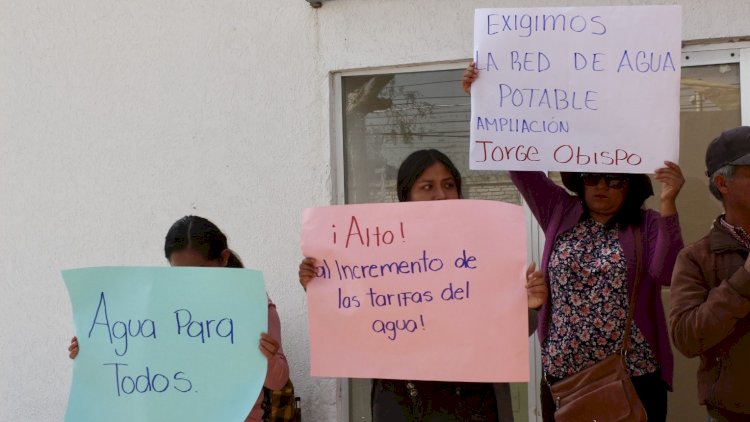 Agua Para
Todos.
¡Alto!
al Incremento de
las tarifas del
agua!
EXIGIMOS
LA RED DE AGUA
POTABLE
AMPLIACIÓN
JORGE OBISPO